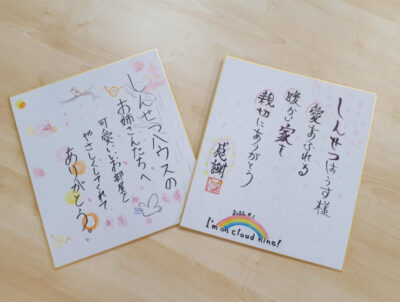 しんせつハウスの
お姉さんたちへ
可愛いいお部屋と
やさしくしてくれて
ありがとう。
しんせつはうす様
愛あふれる
暖かい家と
親切にありがとう
感謝
2022.9.1
I'm on cloud nine!